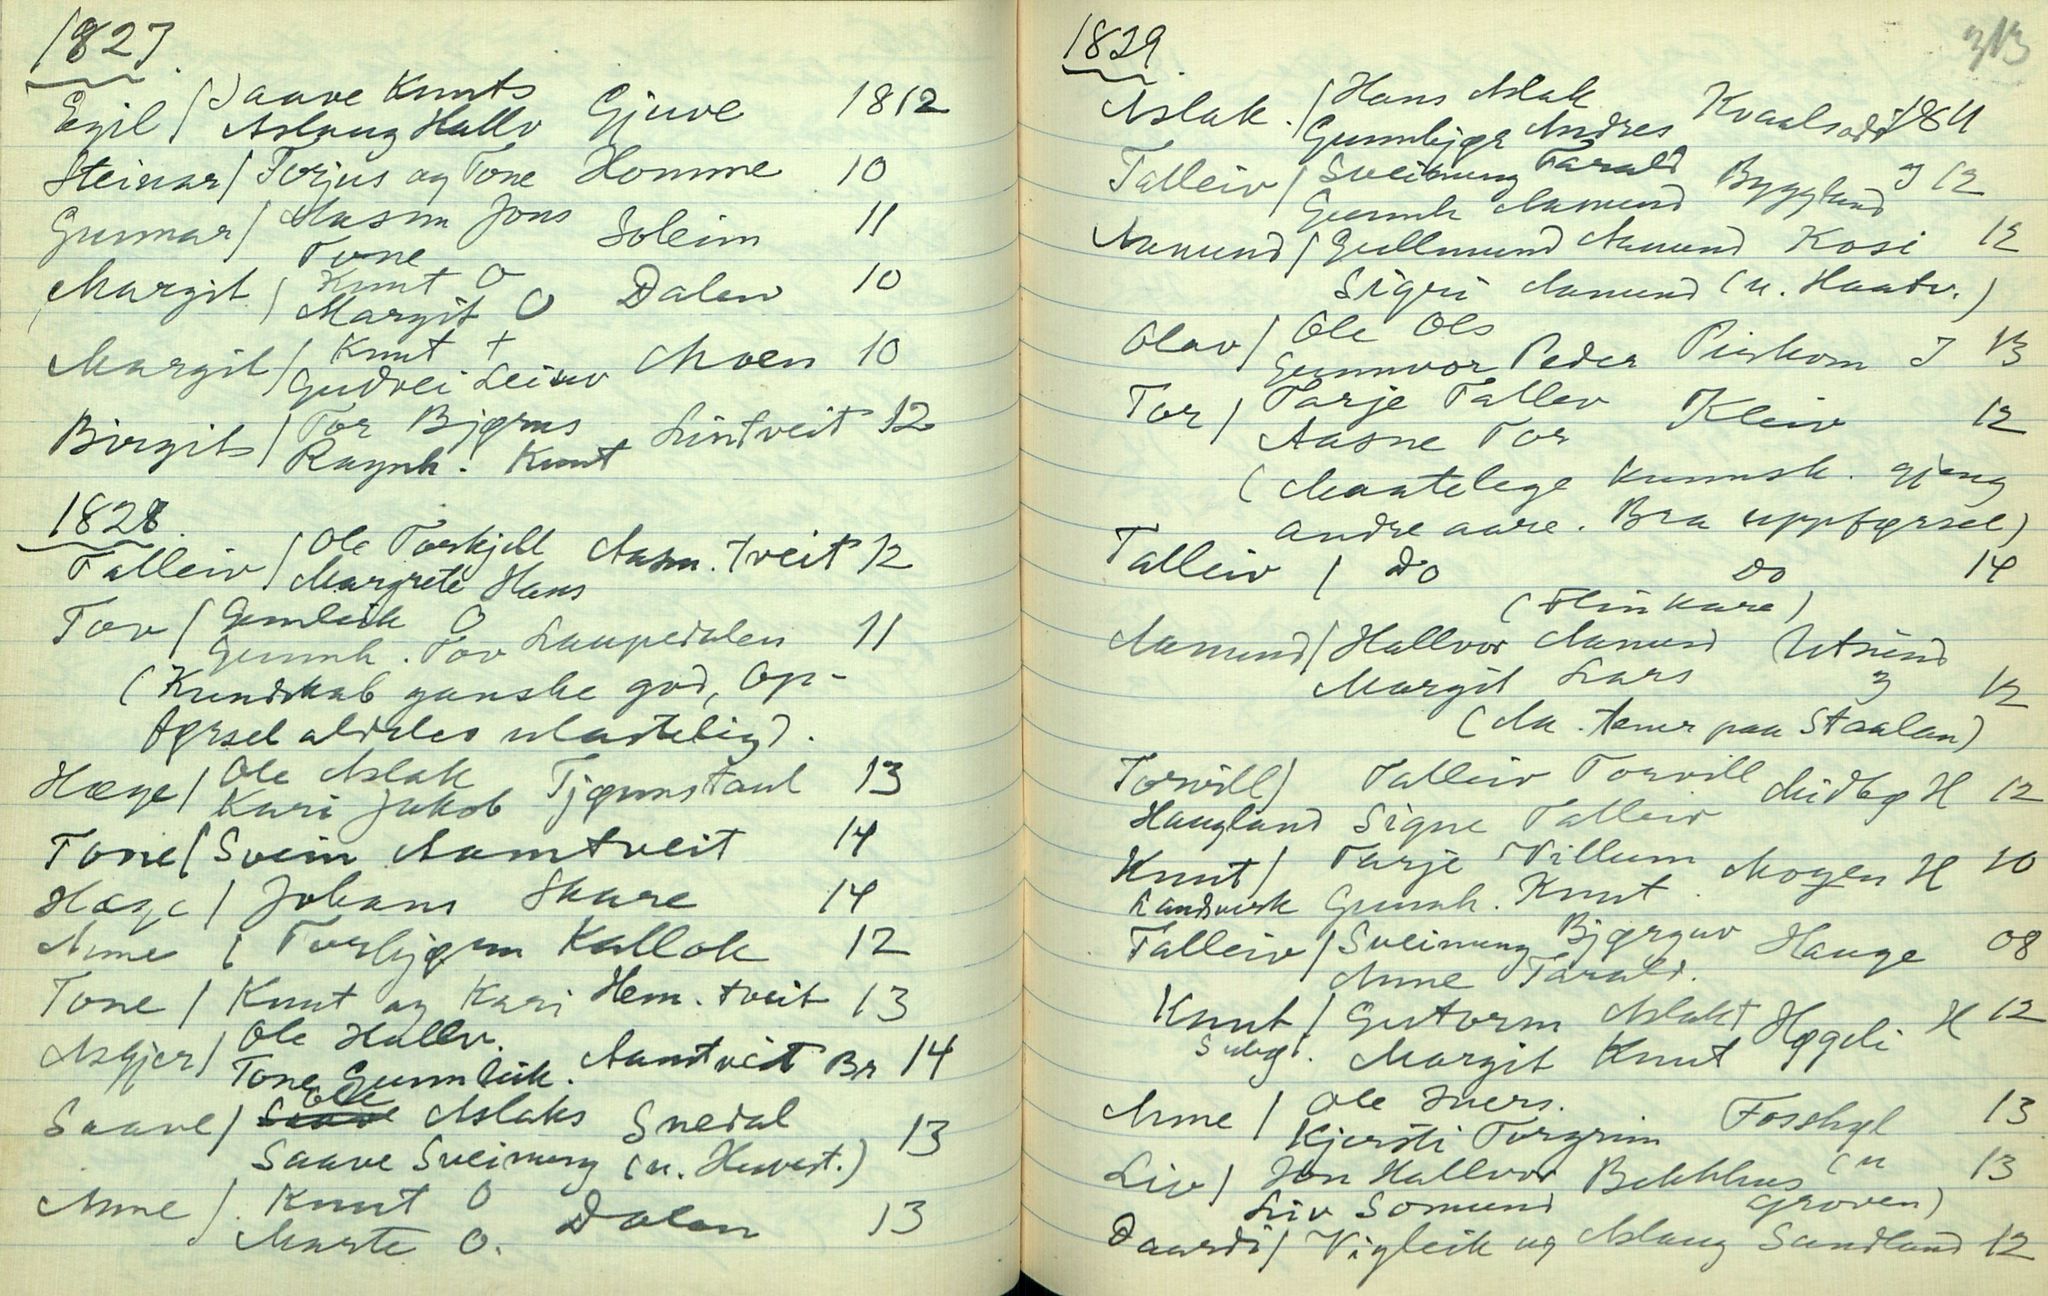 1827.
Egil / Saave Knuts
Aslaug Hallv Gjuve 1812
Steinar / Torjus og Tone Homme 10
Gunnar / Aasm Jons Soleim 11
Tone
Margit / Knut O Dalen 10
Margit O
Margit / Knut + Moen 10
Gudrei Leivv
Birgit / Tor Bjørns Lintveit 12
Raynh. Knut
1828.
Talleiv / Ole Torkjell Aasm. tveit 12
Margrete Hans
Tov / Gunleik O
Gunnh. Tov Laupedalen 11
(Kundskab ganske god, Op-
førsel aldeles ulastelig).
Hæge / Ole Aslak Tjønnstaul 13
Kari Jakob
Tone / Svein Aamtveit 14
Hæge / Johans Skare 14
Anne / Torbjørn Kallok 12
Tone / Knut og Kari Hem. tveit 13
Asbjør / Ole Hallv.
Tone Gunnleik. Aamtveit Br 14
Saave / Ole Aslaks Snedal 13
Saave Sveinung (u. Huvest.)
Anne / Knut O Dalen 13
Marte O.
1829. 313
Aslak / Hans Aslak Kvaalsodd 1811
Gunnbjør Andres
Talleiv / Sveinung Tarald Byggland J 12
Gunnh Aamund
Aamund / Gullmund Aamund Kosi 12
Sigri Aamund (u. Haatv.)
Olav / Ole Ols
Gunnvor Peder Pinhom J 13
Tor / Tarje Tallev Kleiv 12
Aasne Tor
(Maatelege kunnsk. gjeng
andre aare. Bra uppførsel)
Talleiv / Do Do 14
(Flin kare)
Aamund / Hallvor Aamund Utsund
Margit Lars 3 12
(Aa. tener paa Staalan)
Torvill / Talleiv Torvill Midbø H 12
Haugland Signe Talleiv
Knut / Tarje Villum Mogen H 10
Landverk Gunnh. Knut
Talleiv / Sveinung Bjørguv Hauge 08
Anne Tarald.
Knut / Gutorm Aslakt Høgeli H 12
Margit Knut
Anne / Ole Ivers. Fosshyl 13
Kjersti Torgrim
Liv / Jon Hallvor Bekkhus (u 13
Liv Somund Groven)
Daardi / Vigleik og Aslaug Sundland 12